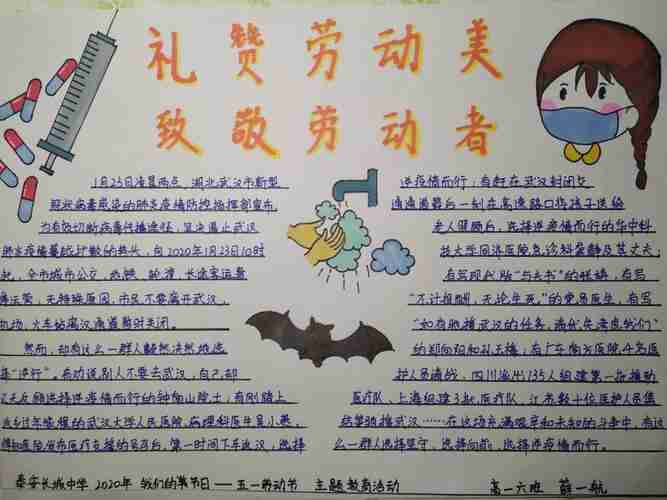 礼赞劳动美
致敬劳动者
1月23日凌晨两点，湖北武汉市新型
冠状病毒感染的肺炎疫情防控指挥部宣布，
为有效切断病毒传播途径，坚决遏止武汉
肺炎疫情蔓延扩散的势头，自2020年1月23日10时
起，全市城市公交、地铁、轮渡、长途客运暂
停运营，无特殊原因，市民不要离开武汉，
机场、火车站离汉通道暂时关闭。
然而，却有这么一群人毅然决然地选
择"逆行"。有劝说别人不要去武汉，自己却
义无反顾选择逆疫情而行的钟南山院士，有刚踏上
返乡过年旅程的武汉大学人民医院病理科医生吴小艳，
得知医院发布医疗支援的号召后，第一时间下车返汉，选择
逆疫情而行；有赶在武汉封闭交
通通道最后一刻在高速路口将孩子送给
老人照顾后，选择逆疫情而行的华中科
技大学同济医院急诊科 及其丈夫，
有写现代版"与夫书"的 ，有写
"不计报酬，无论生死"的党员医生，有写
"如有驰援武汉的任务，请优先考虑我们"
的郑向阳和孙玉婧；有广东南方医院，4名医
护人员请战，四川派出135人组建第一批援助
医疗队，上海组建3批医疗队，江苏数十位医护人员集
结驰援武汉……在这场充满艰辛和未知的斗争中，有这
么一群人选择坚守，选择向前，选择逆疫情而行。
泰安长城中学 2020年 我们的节日——五一劳动节 主题教育活动 高一六班 薛一航